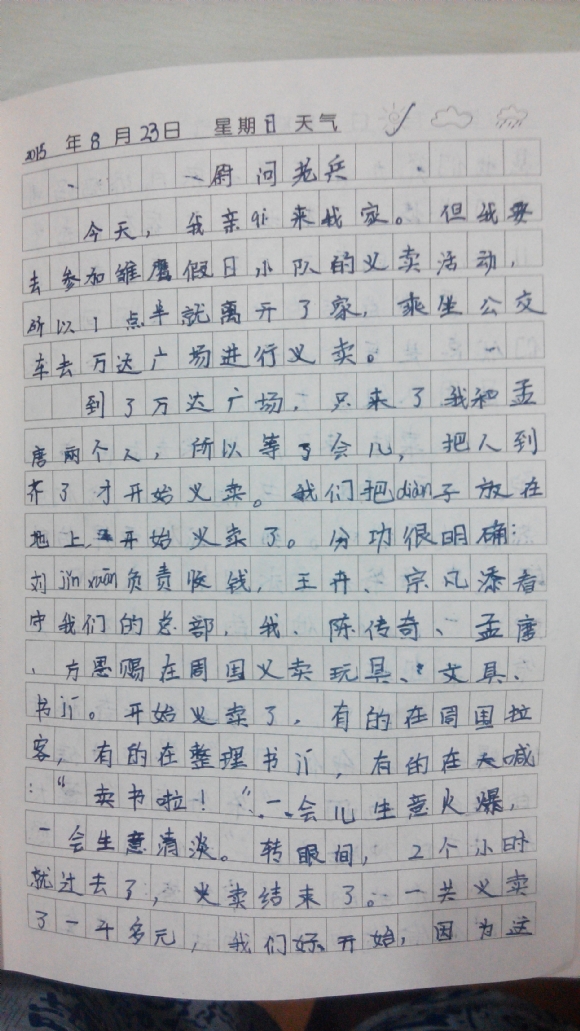 2015年8月23日 星期日 天气
一尉问老兵
今天，我亲qi来我家。但我要
去参加雏鹰假日小队的义卖活动，
所以1点半就离开了家，乘坐公交
车去万达广场进行义卖。
到了万达广场，只来了我和孟
唐两个人，所以等了会儿，把人到
齐了才开始义卖。我们把diàn子放在
地上，开始义卖了。分功很明确：
刘jìn xuān负责收钱，王卉、宗凡添看
守我们的总部，我、陈传奇、孟唐
、方思赐在周围义卖玩具、文具、
书ji。开始义卖了，有的在周围拉
客，有的在整理书ji，有的在大喊
：“卖书啦！”一会儿生意火爆，
一会生意清淡。转眼间，2个小时
就过去了，义卖结束了。一共义卖
了一千多元，我们好开始，因为这